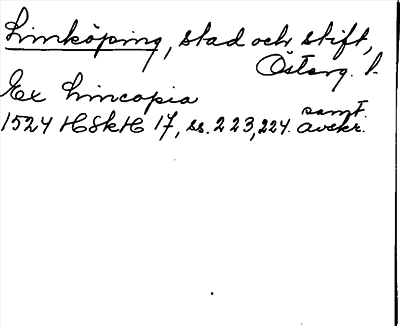 Linköping, stad och stift,
Österg. l.
Ex Lincopia
samt.
1524 HSkH 17, ss. 223, 224. avskr.